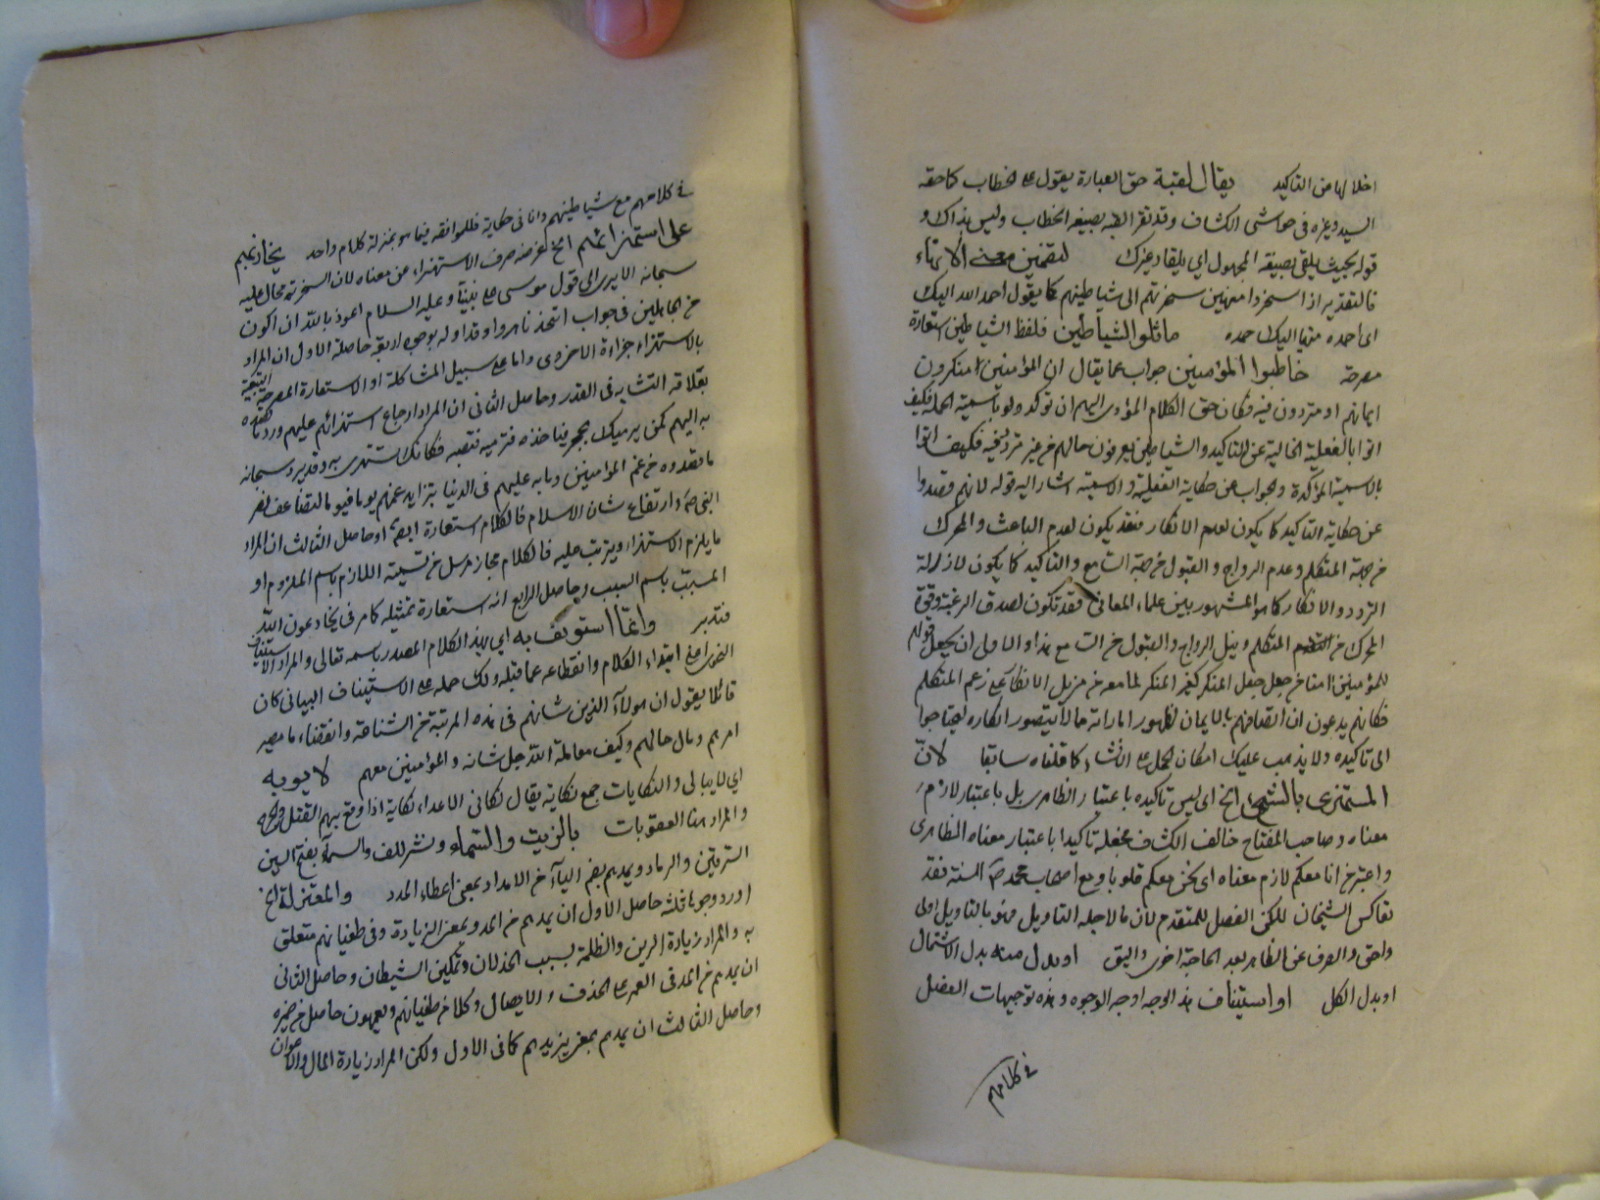 اخلالها من التاكيد يقال لقبة حق العبارة يقول على الخطاب كما حققه
السيد وغيره فى حواشى الكشاف وقد تقر اللغه بصيغه الخطاب وليس بذاك و
قوله بحيث يلقى بصيغة المجهول اى يلقاه غيرك لتضمن معنى الانهاء
فالتقدير اذا سخروا منهين سخريتهم الى شياطينهم كما يقول احمد الله اليك
اى احمده منهيا اليك حمده ماثلوا الشياطين فلفظ الشياطين استعارة
مصرحة خاطبوا المؤمنين جواب عما يقال ان المؤمنين منكرون
ايمانهم او مترددون فيه فكان حق الكلام المؤدى اليهم ان توكد ولو باسمية الجملة فكيف
اتوا بالفعلية الخالية عن التاكيد والشياطين يعرفون حالهم من غير تردد فيه فكيف اتوا
بالاسمية المؤكدة والجواب عن حكاية الفعلية والاسمية اشار اليه قوله لانهم قصدوا
عن حكاية التاكيد كما يكون لعدم الانكار فقد يكون لعدم الباعث والمحرك
من جهة المتكلم وعدم الرواج والقبول من جهة السامع والتاكيد كما يكون لازالة
التردد والانكار كما هو المشهور بين علماء المعانى فقد تكون لصدق الرغبة وقوة
المحرك من المتكلم ونيل الرواج والقبول من السامع هذا والاولى ان يجعل قولهم
للمؤمنين امنا من جعل المنكر كغير المنكر لما معه من مزيل الانكار على زعم المتكلم
فكانهم يدعون ان اتصافهم بالايمان لظهور اماراته مما لا يتصور انكاره ليحتاجوا
الى تاكيده ولا يذهب عليك امكان الحمل على انشاء كما قلناه سابقا لان
المستهزئ بالشئ الخ اى ليس تاكيده باعتبار الظاهرى بل باعتبار لازم
معناه وصاحب المفتاح خالف الكشاف فجعله تاكيدا باعتبار معناه الظاهرى
واعتبر من انا معكم لازم معناه اى نحن معكم قلوبا ومع اصحاب محمد صم السنة فقد
تعاكس الشيخان لكن الفضل للمتقدم لان ما لاجله التاويل فهو بالتاويل اولى
واحق والصرف عن الظاهر بعد الحاجة احرى واليق او بدل منه بدل الاشتمال
او بدل الكل او استيناف هذا الوجه اوجه الوجوه وهذه توجيهات الفصل
فى كلامهم
فى كلامهم مع شياطينهم واما فى حكاية فللموافقه فيما هو بمنزلة كلام واحد يجازيهم
على استهزائهم الخ غرضه صرف الاستهزاء عن معناه لان السخرية محال عليه
سبحانه الا يرى الى قول موسى على نبينا وعليه السلام اعوذ بالله ان اكون
من الجاهلين فى جواب اتتخذنا هزوا وقد اوله بوجوه اربعة حاصله الاول ان المراد
بالاستهزاء جزاءه الاخروى واما على سبيل المشاكلة او الاستعارة المصرحة التبعية
بعلاقة التشابه فى القدر وحاصل الثانى ان المراد ارجاع استهزائهم عليهم ورد
به اليهم كمن يرميك بحجر فتاخذه فترميه فتصيبه فكانك تستهزئ به وقد يرد سبحانه
ما قصدوه من غم المؤمنين وما به عليهم فى الدنيا بتزايد غمهم يوما فيوما لتضاعف
وارتفاع شان الاسلام فالكلام استعارة ايضا وحاصل الثالث ان المراد
ما يلزم الاستهزاء ويترتب عليه فالكلام مجاز مرسل من تسمية اللازم باسم الملزوم او
المسبب باسم السبب وحاصل الرابع انه استعارة تمثيلية كما مر فى يخادعون الله
فتدبر وانما استونف به اى بهذا الكلام المصدر باسمه تعالى والمراد الاستيناف
النحوى اعنى ابتداء الكلام وانقطاعه عما قبله ولك حمله على الاستيناف البيانى كان
قائلا يقول ان هؤلاء الذين شانهم فى هذه المرتبة من الشناعة وانقضاء ما مصير
امرهم ومال حالهم وكيف معاملة الله جل شانه والمؤمنين معهم لا يوبه
اى لا يبالى والنكايات جمع نكاية يقال نكا فى الاعداء نكاية اذا وقع بهم القتل والجرح
والمراد هنا العقوبات بالزيت والسماد ونشر للف والسماد بفتح السين
السرقين والرماد ويمدهم بضم الياء من الامداد بمعنى اعطاء المدد والمعتزلة الخ
اورد وجوها ثلثة حاصل الاول ان يمدهم من المد وبمعنى الزيادة وفى طغيانهم متعلق
به والمراد زيادة الرين والظلمة بسبب الخذلان وتمكين الشيطان وحاصل الثانى
ان يمدهم من المد فى العمر على الحذف والايصال وكلا من طغيانهم ويعمهون حاصل من ضميره
وحاصل الثالث ان يمدهم بمعنى يزيدهم كما فى الاول ولكن المراد زيادة المال والاعوان